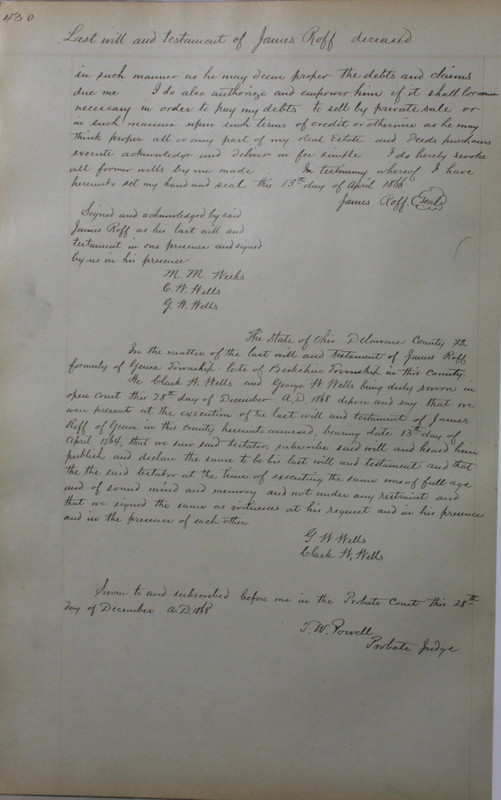 430
Last will and testament of James Roff deceased
in such manner as he may deem proper the debts and claims
due me I do also authorize and empower him if it shall become
necessary in order to pay my debts to sell by private sale or
in such manner upon such terms of credit or otherwise as he may
think proper all or any part of my Real Estate and Deeds purchasers
execute acknowledge and deliver in fee simple I do hereby revoke
all former wills by me made In testimony whereof I have
hereunto set my hand and seal this 13th day of April
James Roff Seal
Signed and acknowledged by said
James Roff as his last will and
testament in our presence and signed
by us in his presence
M. M. Weeks
C. W. Wells
G. W. Wells
The State of Ohio Delaware County
In the matter of the last will and testament of James Roff
formerly of Genoa Township late of Berkshire Township in this County
We Clark W. Wells and George W Wells being duly sworn in
open court this 28th day of December A.D. 1868 depose and say that we
were present at the execution of the last will and testament of James
Roff of Genoa in this county hereunto annexed, bearing date 13th day of
April 1864, that we saw said testator subscribe said will and heard him
publish and declare the same to be his last will and testament and that
the the said testator at the time of executing the same was of full age
and of sound mind and memory and not under any restraint and
that we signed the same as witnesses at his request and in his presence
and in the presence of each other
G W Wells
Clark W. Wells
Sworn to and subscribed before me in the Probate Court this 28th
day of December A.D. 1868
T. W. Powell
Probate Judge